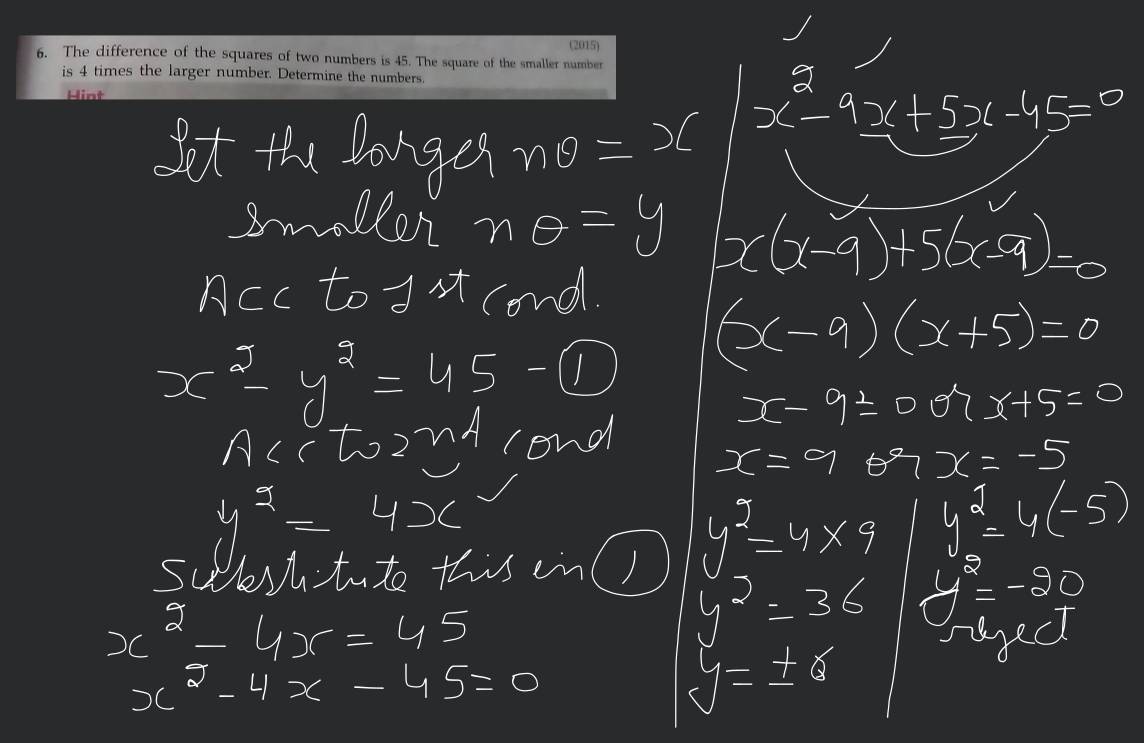 (2015)
6. The difference of the squares of two numbers is 45. The square of the smaller number
is 4 times the larger number. Determine the numbers.
Hint
Let the larger no = x
smaller no = y
Acc to 1st cond.
x² - y² = 45 - ①
Acc to 2nd cond
y² = 4x ✓
Substitute this in ①
x² - 4x = 45
x² - 4x - 45 = 0
x² - 9x + 5x - 45 = 0
x(x-9) + 5(x-9) = 0
(x-9) (x+5) = 0
x - 9 = 0 or x+5 = 0
x = 9 or x = -5
y² = 4 × 9
y² = 36
y = ± 6
y² = 4(-5)
y² = -20
reject